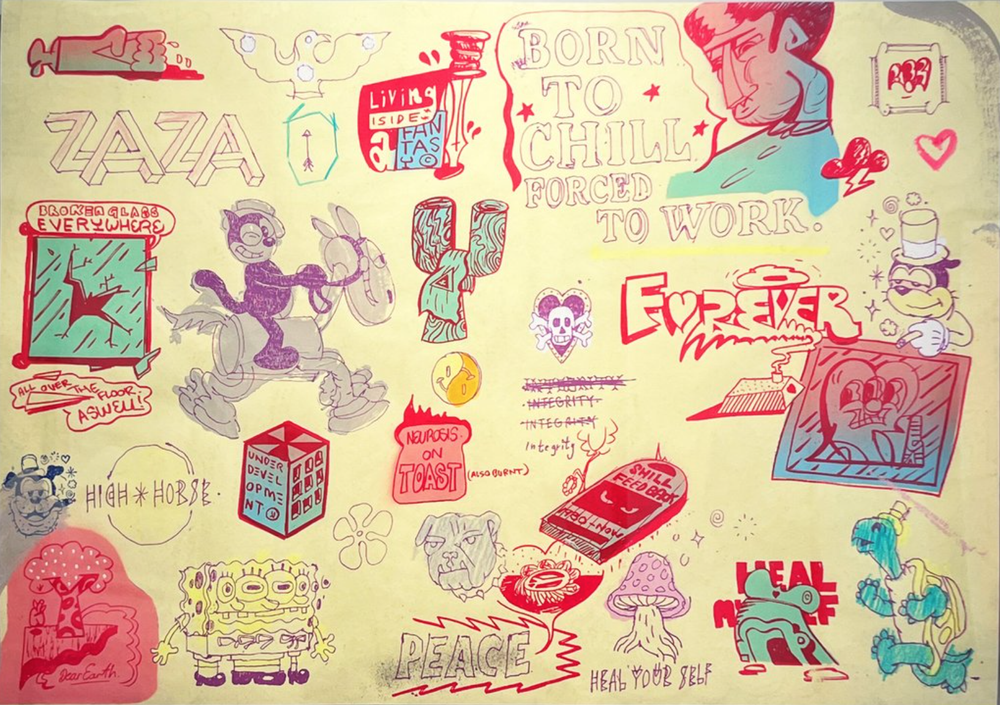 BORN
TO
CHILL
FORCED
TO WORK.
LiVing
ISIDE
a FAN
TAS
Y
ZAZA
BROKEN GLASS
EVERYWHERE
ALL OVER THE FLOOR
ASWELL!
FOREVER
INTEGRITY
INTEGRITY
Integrity
NEUROSIS
ON
TOAST
(ALSO BURNT)
HIGH * HORSE.
UNDER
DEVEL
OPME
NT
SHILL
FEED BACK
PEACE
HEAL YOUR SELF
HEAL
Dear Earth.